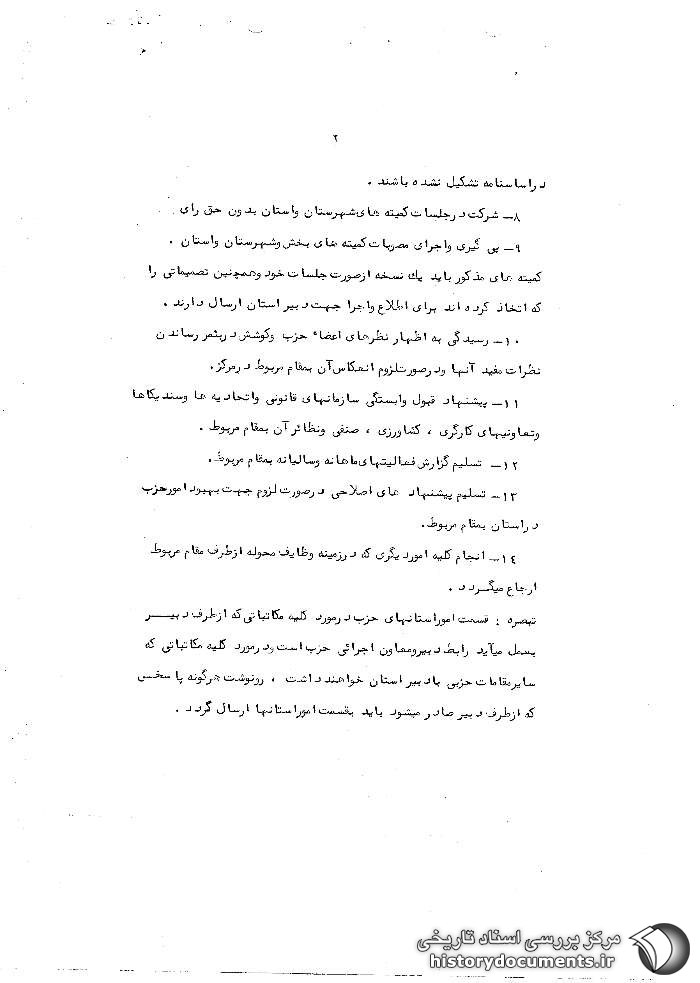 ۲
در اساسنامه تشکیل نشده باشند .
۸ــ شرکت در جلسات کمیته های شهرستان و استان بدون حق رای
۹ــ پی گیری و اجرای مصوبات کمیته های بخش و شهرستان و استان .
کمیته های مذکور باید یك نسخه از صورت جلسات خود و همچنین تصمیماتی را
که اتخاذ کرده اند برای اطلاع و اجرا جهت دبیر استان ارسال دارند .
۱۰ــ رسیدگی به اظهار نظرهای اعضاء حزب و کوشش در بثمر رساندن
نظرات مفید آنها و در صورت لزوم انعکاس آن بمقام مربوط در مرکز .
۱۱ــ پیشنهاد قبول وابستگی سازمانهای قانونی و اتحادیه ها و سندیکاها
و تعاونیهای کارگری ، کشاورزی ، صنفی و نظائر آن بمقام مربوط .
۱۲ــ تسلیم گزارش فعالیتهای ماهانه و سالیانه بمقام مربوط .
۱۳ــ تسلیم پیشنهاد های اصلاحی در صورت لزوم جهت بهبود امور حزب
در استان بمقام مربوط .
۱٤ــ انجام کلیه امور دیگری که در زمینه وظایف محوله از طرف مقام مربوط
ارجاع میگـردد .
تبصره : قسمت امور استانهای حزب در مورد کلیه مکاتباتی که از طرف دبیـــر
بعمل میآید رابط دبیر و معاون اجرائی حزب است و در مورد کلیه مکاتباتی که
سایر مقامات حزبی با دبیر استان خواهند داشت ، رونوشت هرگونه پاسخی
که از طرف دبیر صادر میشود باید بقسمت امور استانها ارسال گردد .
مرکز بررسی اسناد تاریخی
historydocuments.ir